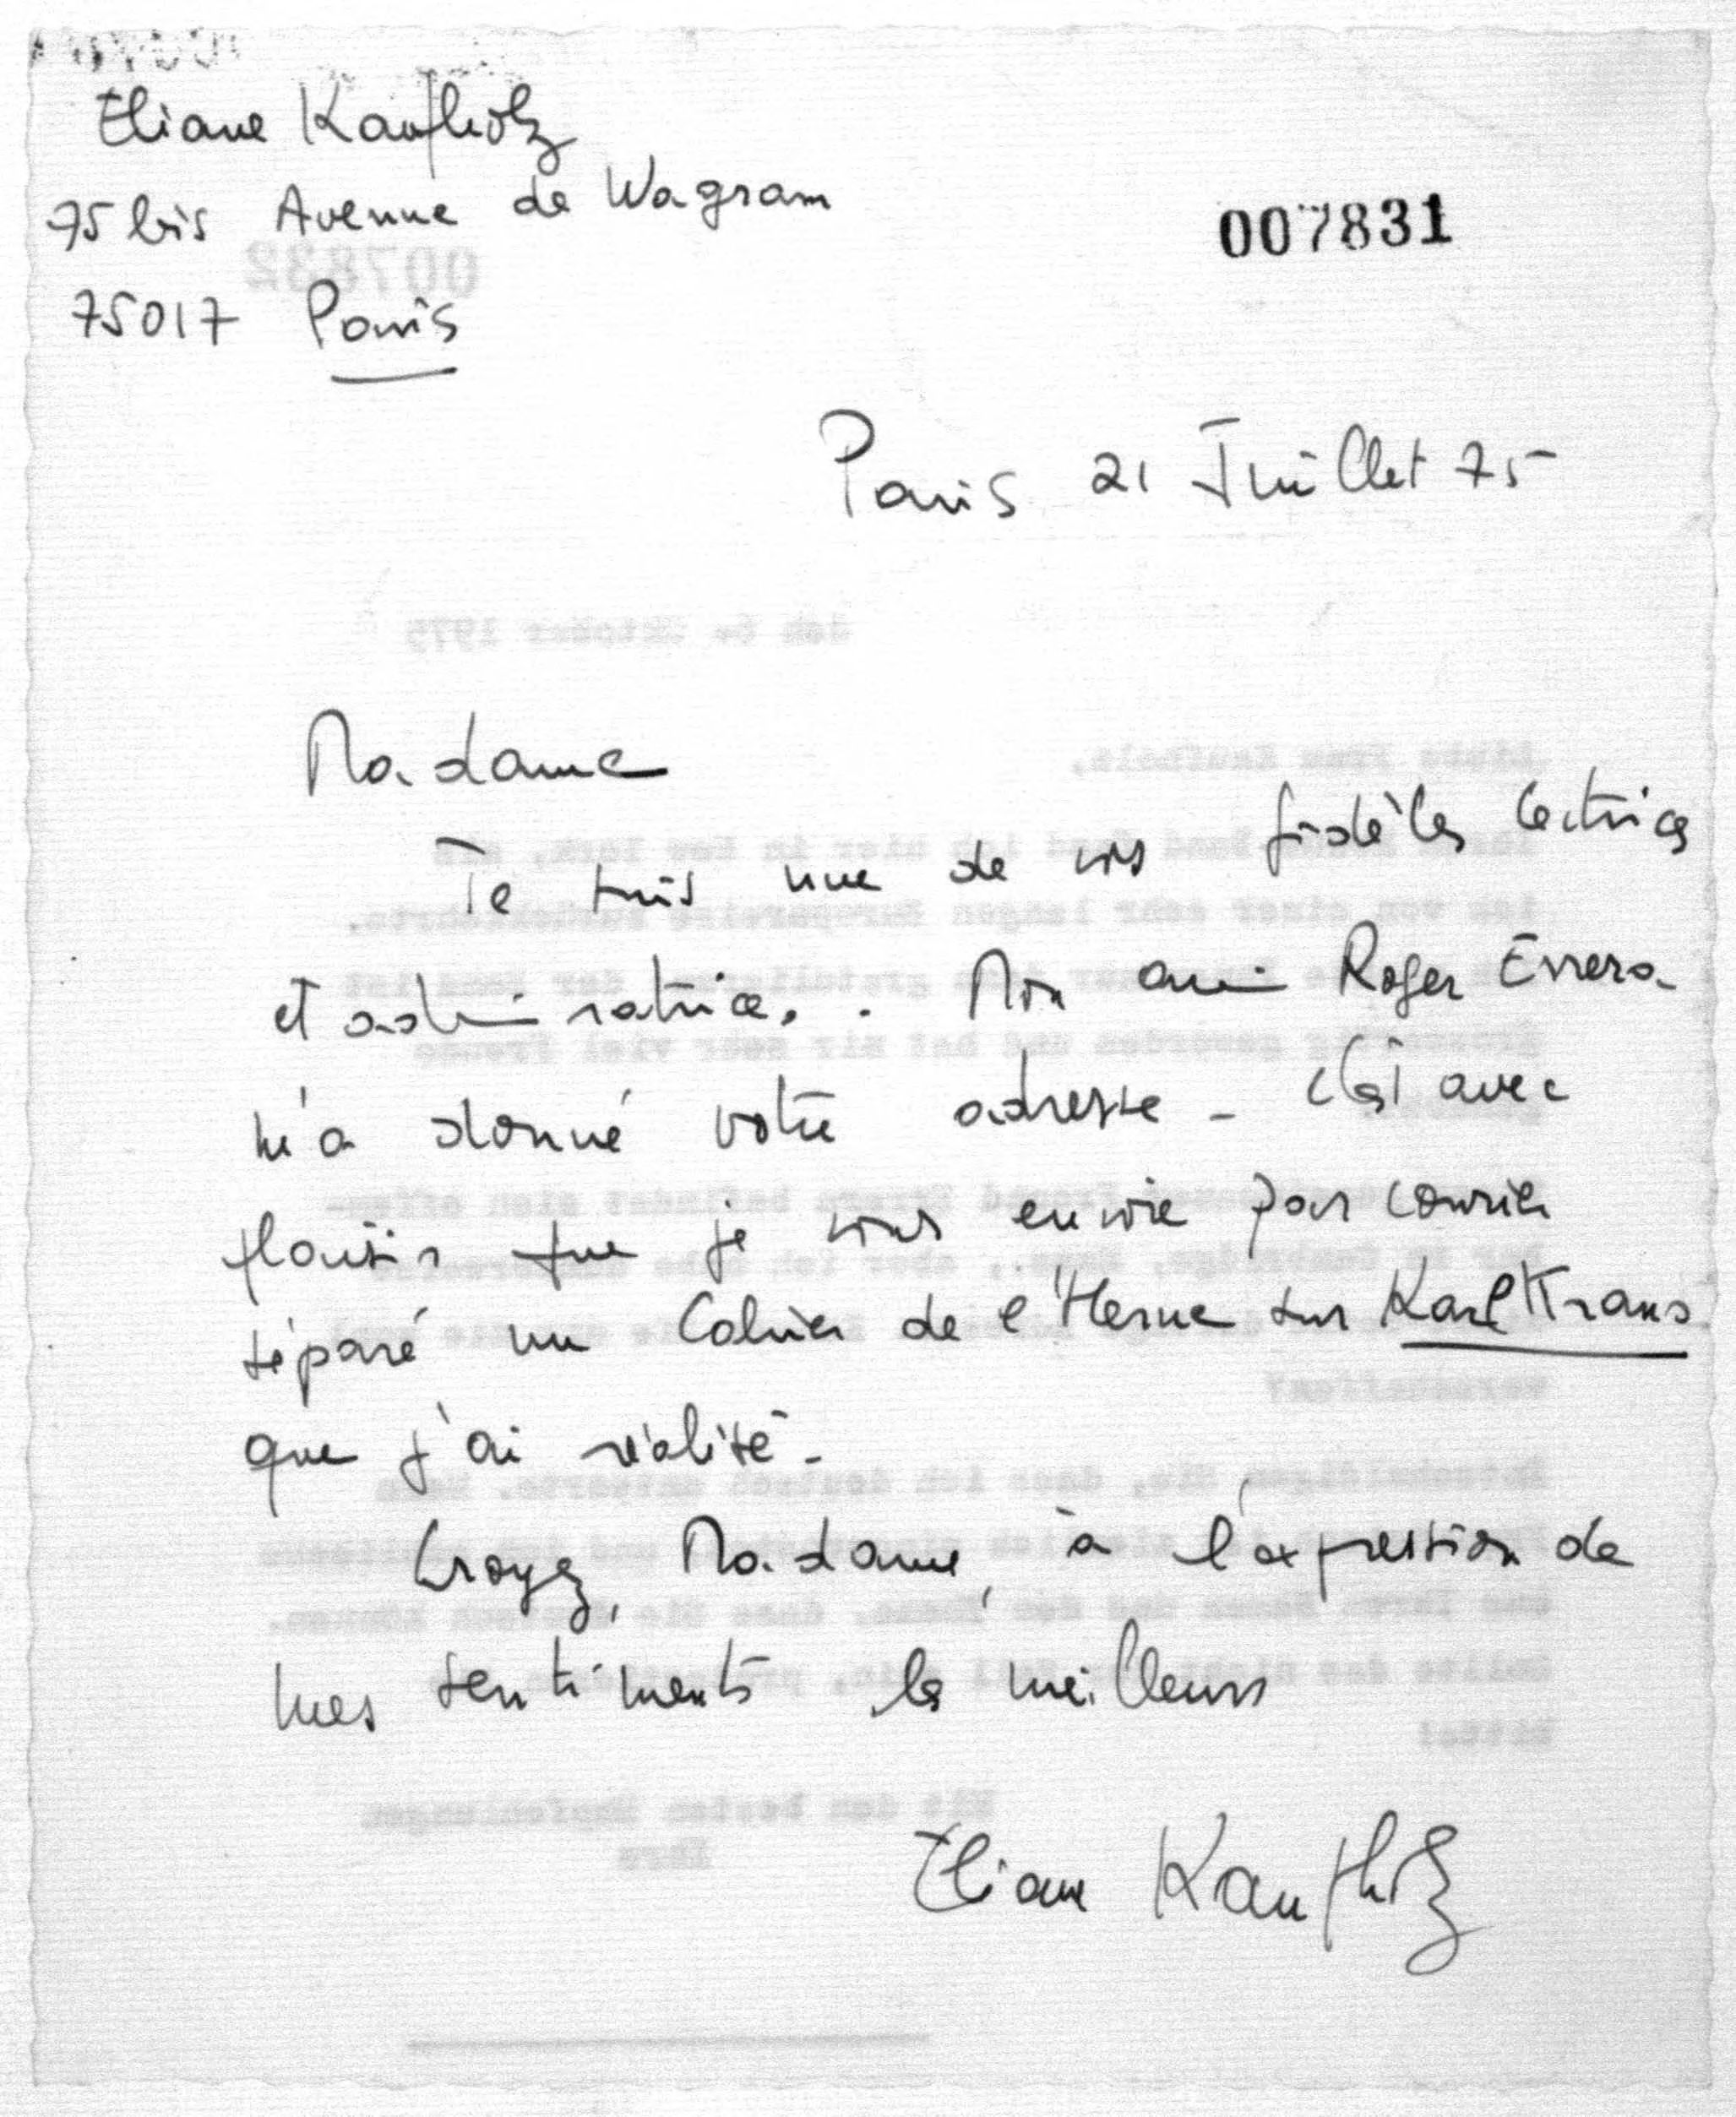 Eliane Kaufholz
75 bis Avenue de Wagram
007831
75017 Paris
Paris 21 Juillet 75
Madame
Je suis une de vos fidèles lectrices
et admiratrice. . Mon ami Roger Errera
m'a donné votre adresse - C'est avec
plaisir que je vous envoie par courrier
séparé un Cahier de l'Herne sur Karl Kraus
que j'ai réalisé -
Croyez, Madame, à l'expression de
mes sentiments les meilleurs
Eliane Kaufholz